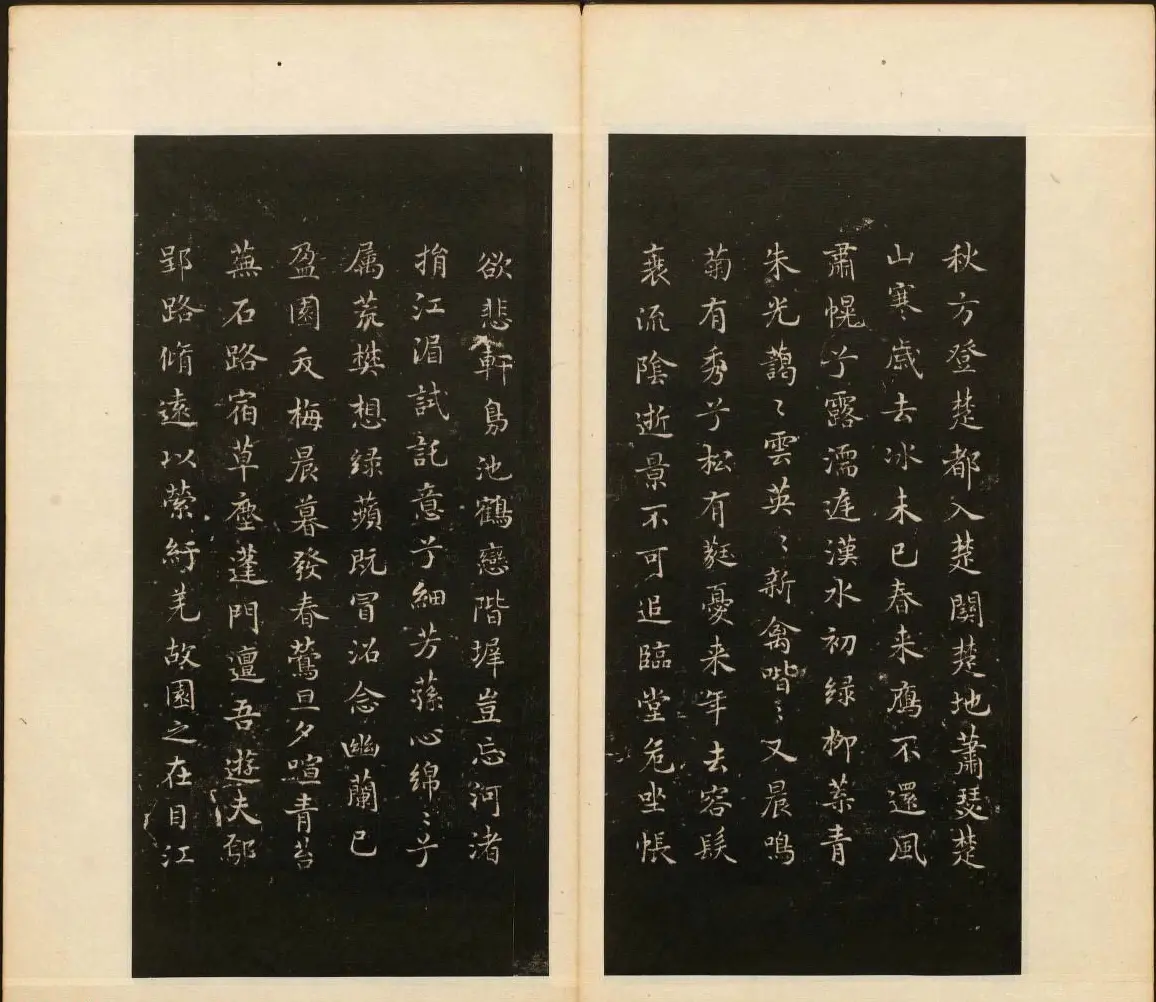 秋方登楚都入楚関楚地蕭瑟楚
山寒歳去冰未已春来鴈不還風
肅幌兮露濡庭漢水初緑柳葉青
朱光藹〻雲英〻新禽喈〻又晨鳴
菊有秀兮松有蕤憂来年去容髮
衰流陰逝景不可追臨堂危坐悵
欲悲軒鳧池鶴戀階墀豈忘河渚
捐江湄試託意兮細芳蓀心綿〻兮
属荒樊想緑蘋既冒沼念幽蘭已
盈園夭梅晨暮發春鶯旦夕喧青苔
蕪石路宿草塵蓬門邅吾遊夫鄢
郢路脩遠以縈紆羌故園之在目江